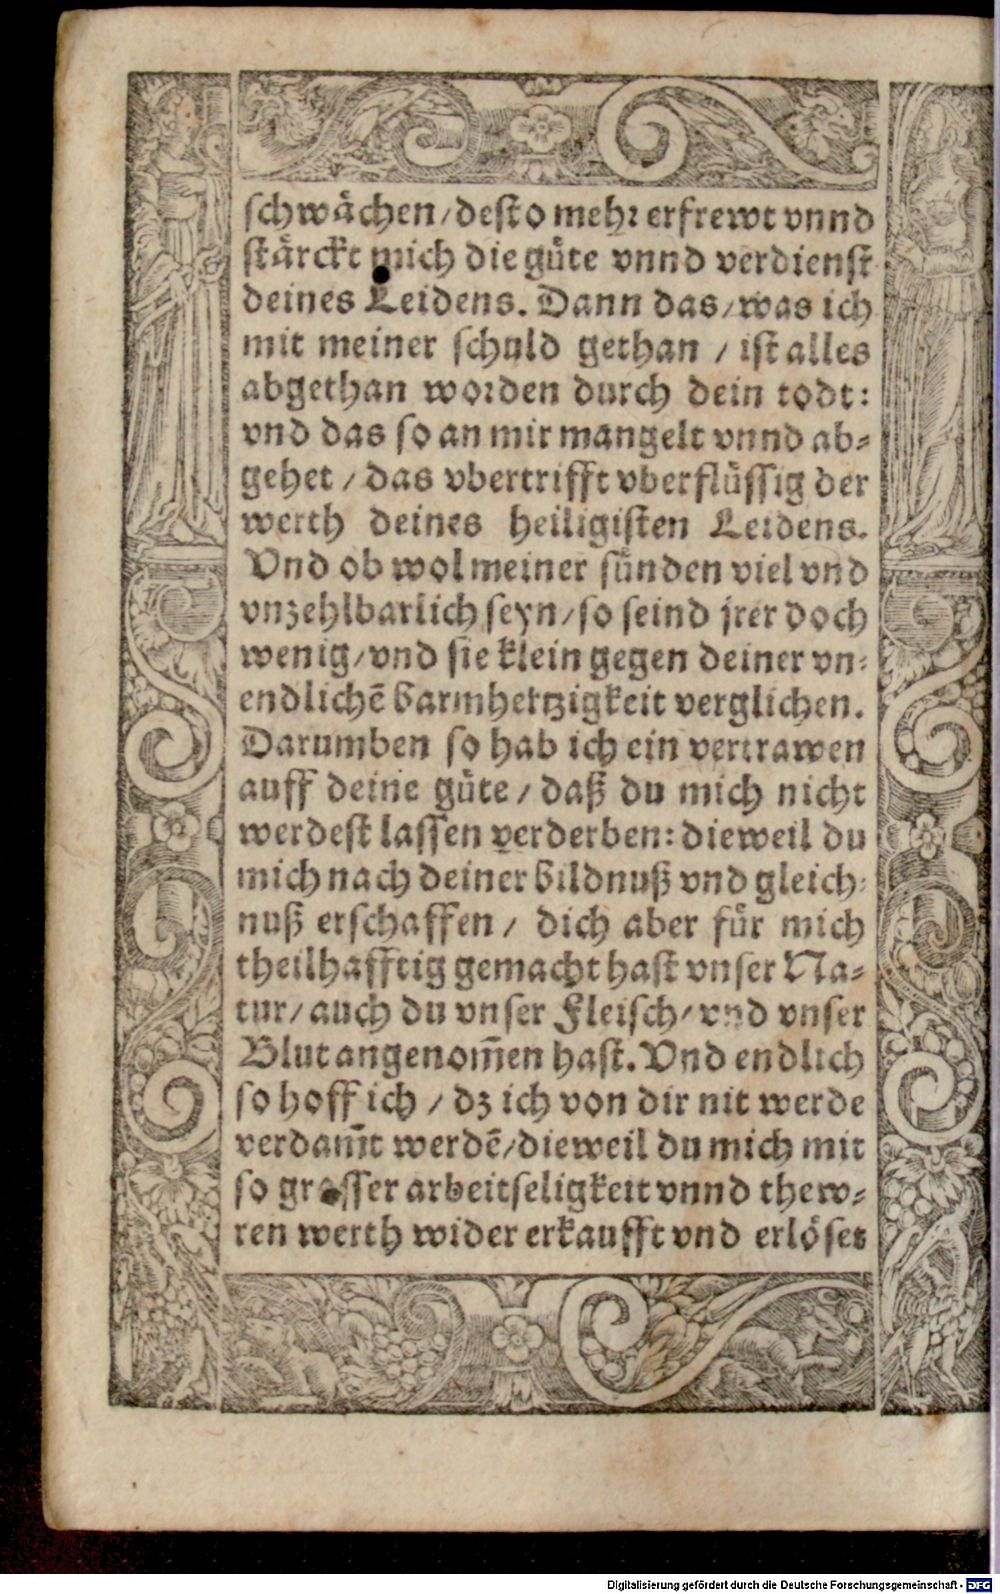 schwächen / desto mehr erfrewt vnnd
stärckt mich die güte vnnd verdienst
deines Leidens. Dann das / was ich
mit meiner schuld gethan / ist alles
abgethan worden durch dein todt:
vnd das so an mir mangelt vnnd ab-
gehet / das vbertrifft vberflüssig der
werth deines heiligisten Leidens.
Vnd ob wol meiner sünden viel vnd
vnzehlbarlich seyn / so seind jrer doch
wenig / vnd sie klein gegen deiner vn-
endlichē barmhertzigkeit verglichen.
Darumben so hab ich ein vertrawen
auff deine güte / daß du mich nicht
werdest lassen verderben: dieweil du
mich nach deiner bildnuß vnd gleich-
nuß erschaffen / dich aber für mich
theilhafftig gemacht hast vnser Na-
tur / auch du vnser Fleisch / vnd vnser
Blut angenom̃en hast. Vnd endlich
so hoff ich / dz ich von dir nit werde
verdam̃t werdē / dieweil du mich mit
so grosser arbeitseligkeit vnnd thew-
ren werth wider erkaufft vnd erlöset
Digitalisierung gefördert durch die Deutsche Forschungsgemeinschaft - DFG